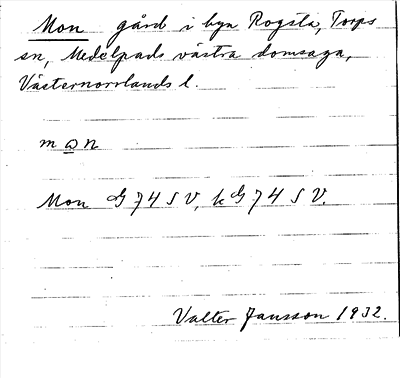 Mon gård i byn Rogsta, Torps
sn, Medelpads västra domsaga,
Västernorrlands l.
Mon G 74 S V, k G 74 S V.
Valter Jansson 1932.